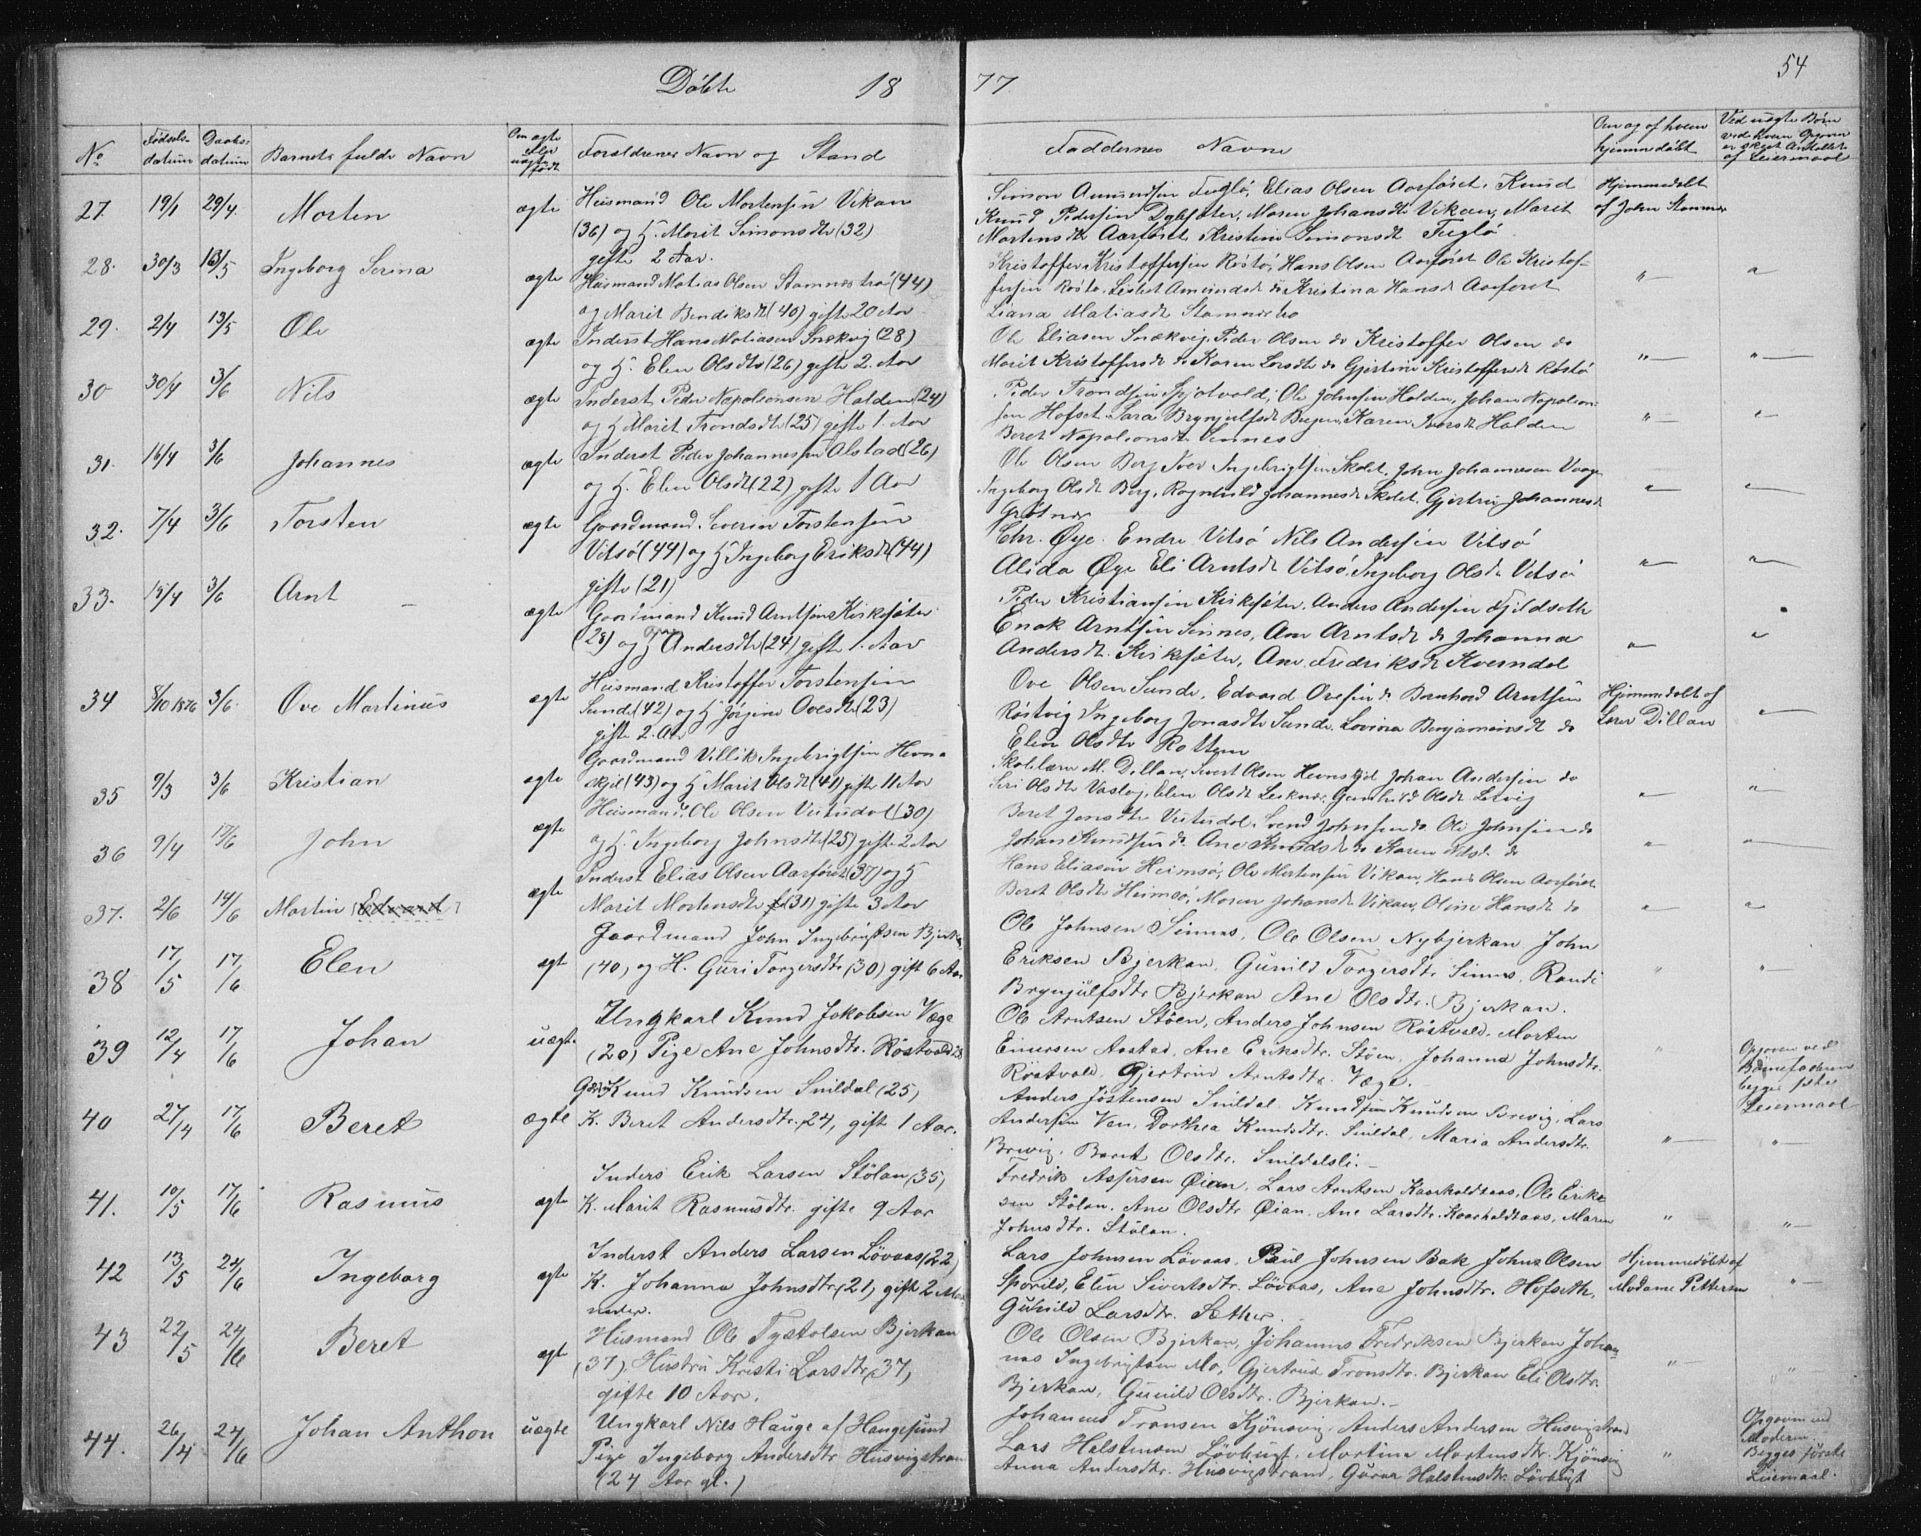 54
Döbte 18 77
No Fødsels-datum Daabs-datum Barnets fulde Navn Om ægte eller uægte født Forældrenes Navn og Stand Faddernes Navne Om og af hvem hjemmedøbt Ved uægte Børn ved hvem Opgaven er skeet Antallet af Leiermaal
27. 19/1 29/4 Morten ægte Huusmand Ole Mortensen Vikan
(36) og H. Marit Simonsdtr (32)
gifte 2 Aar.
Simon Amundsen Fuglö, Elias Olsen Aarföret, Knud
Knud Pedersen Dybsæter, Maren Johansdtr Vikan, Marit
Mortensdtr Aarföret, Kristine Simonsdt Fuglö
Hjemmedöbt
af John Stamnes
28. 30/3 13/5 Ingeborg Serina ægte Huusmand Matias Olsen Stamneströ (44)
og Marit Bendiksdt (40) gifte 20 Aar
Kristoffer Kristoffersen Röstö, Hans Olsen Aarföret Ole Kristof-
fersen Röstö, Lisbet Amundsdt do Kristina Hansdt Aarföret
Liana Matiasdt Stamnesbo
29. 2/4 13/5 Ole ægte Inderst Hans Matiasen Snekvig (28)
og H. Elen Olsdtr (26) gifte 2 Aar
Ole Eliasen Snækvig, Peder Olsen do Kristoffer Olsen do
Marit Kristoffersdt do Karen Larsdtr do Gjertine Kristoffersdt Röstö
30 30/4 3/6 Nils ægte Inderst Peder Napoleonsen Halden (24)
og H Marit Trondsdtr (25) gifte 1 Aar
Peder Trondsen Gjötvold, Ole Johnsen Halden, Johan Napoleon-
sen Hofset, Sara Brynjulfsdt Bugen, Karen Iversdt Halden
Beret Napoleonsdt Sinnes
31. 16/4 3/6 Johannes ægte Inderst Peder Johannessen Alstad (26)
og H. Elen Olsdt (22) gifte 1 Aar
Ole Olsen Berg, Iver Ingebrigtsen Skolet, John Johannesen Vaage
Ingeborg Olsdt Berg, Ragnhild Johannesdt Skolet, Gjertrü Johannesdt
Grötnes
32. 7/4 3/6 Torsten ægte Gaardmand Severin Torstensen
Vitsö (44) og H Ingeborg Eriksdt (44)
gifte (21)
Chr. Øye. Endre Vitsö Nils Andersen Vitsö
Alida Øye Eli Arntsdt Vitsö, Ingeborg Olsdt Vitsö
33. 15/4 3/6 Arnt ægte Gaardmand Knud Arntsen Kirksæter
(28) og H Andersdtr (24) gifte 1. Aar
Peder Kristiansen Kirksæter, Anders Andersen Fjeldseth
Enok Arntsen Sinnes, Ane Arntsdt do Johanna
Andersdt. Kirksæter, Ane Fredriksdt Kvamdal
34 8/10 1876 3/6 Ove Martinus ægte Huusmand Kristoffer Torstensen
Sunde (42) og H Jörgine Ovesdtr (23)
gifte 2 Aar
Ove Olsen Sunde, Edvard Ovesen do Bernhard Arntsen
Röstvig Ingeborg Jonasdtr Sunde, Lovisa Benjaminsdt do
Elen Olsdtr Rottem
Hjemmedöbt af
Lærer Dillan
35 9/3 3/6 Kristian ægte Gaardmand Villik Ingebrigtsen Hevn-
skjel (43) og H Marit Olsdt (41) gifte 11 Aar
Skolelærer M. Dillan, Sivert Olsen Hevnskjel Johan Andersen do
Siri Olsdtr Vaslag, Elen Olsdt Leknes Gunhild Olsdt Letvig
36 9/4 17/6 John ægte Huusmand Ole Olsen Vutudal (30)
og H. Ingeborg Johnsdt (25) gifte 2 Aar
Beret Jonsdtr Vutudal, Svend Johnsen do Ole Johnsen do
Johan Knudsen do Ane Knudsdt do Karen Nilsd. do
37. 2/6 14/6 Martin Edvard ægte Inderst Elias Olsen Aarföret (37) og H
Marit Mortensdtr (31) gifte 3 Aar
Hans Eliasen Heimsö, Ole Mortensen Vikan, Hans Olsen Aarföret
Beret Olsdt Heimsö, Maren Johansdt Vikan, Oline Hansdt do
38 17/5 17/6 Elen ægt Gaardmand John Ingebrigtsen Bjerkan
(40) og H. Guri Torgersdtr (30) gift 6 Aar
Ole Johnsen Sinnes, Ole Olsen Nybjerkan John
Eriksen Bjerkan, Gunild Torgersdtr Sinnes, Randi
Brynjulfsdtr Bjerkan Ane Olsdtr. Bjerkan.
39 12/4 17/6 Johan uægte Ungkarl Knud Jakobsen Væge
(20) Pige Ane Johnsdtr. Röstvold 28
Ole Arntsen Stöen, Anders Johnsen Röstvold. Morten
Einersen Aastad, Ane Eriksdtr. Stöen, Johanna Johnsdtr.
Röstvold. Gjertrud Arntsdtr. Væge.
Opgaven ved
Barnefaderen
begges 1ste
Leiermaal
40 27/4 17/6 Beret ægte Gaardm Knud Knudsen Snildal (25)
K. Beret Andersdtr, 24, gift 1 Aar.
Anders Jöstensen Snildal, Knud Knudsen Brevig, Lars
Andersen Ven, Dorthea Knudsdtr. Snildal, Maria Andersdtr.
Brevig, Beret Olsdtr. Snildalsli.
41. 10/5 17/6 Rasmus ægte Inders Erik Larsen Stölan (35)
K. Marit Rasmusdtr. gifte 9 Aar
Fredrik Assersen Øian, Lars Arntsen Kaarholdtaas, Ole Erik-
sen Stölan, Ane Olsdtr Øian, Ane Larsdtr. Kaarholdtaas, Maren
Johnsdtr. Stölan.
42 13/5 24/6 Ingeborg ægte Inderst Anders Larsen Lövaas (22)
K. Johanna Johnsdtr (21) gift 2 Maa-
neder.
Lars Johnsen Lövaas, Paul Johnsen Bak John Olsen
Sporild, Elen Sivertsdtr. Lövaas, Ane Johnsdtr. Hofseth,
Gunild Larsdtr. Sæther.
Hjemmedöbt af
Madame Pettersen
43 22/5 24/6 Beret ægt Husmand Ole Tystolsen Bjerkan
(37) Hustru Kristi Larsdtr, 37,
gifte 10 Aar.
Ole Olsen Bjerkan, Johannes Fredriksen Bjerkan Johan-
nes Ingebrigtsen Mo, Gjertrud Tronsdtr. Bjerkan Eli Olsdtr.
Bjerkan, Gunild Olsdtr. Bjerkan.
44. 26/4 24/6 Johan Anthon uægte Ungkarl Nils Hauge af Haugesund
Pige Ingeborg Andersdtr Husvigstrand
(24 Aar gl.)
Johannes Transen Kjönsvig, Anders Andersen Husvigstrand
Lars Halstensen Lövbugt, Martina Mortensdtr. Kjönsvig
Anna Andersdtr. Husvigstrand, Guroe Halstensdtr. Lövbugt
Opgaven ved
Moderen
Begges förste
Leiermaal.